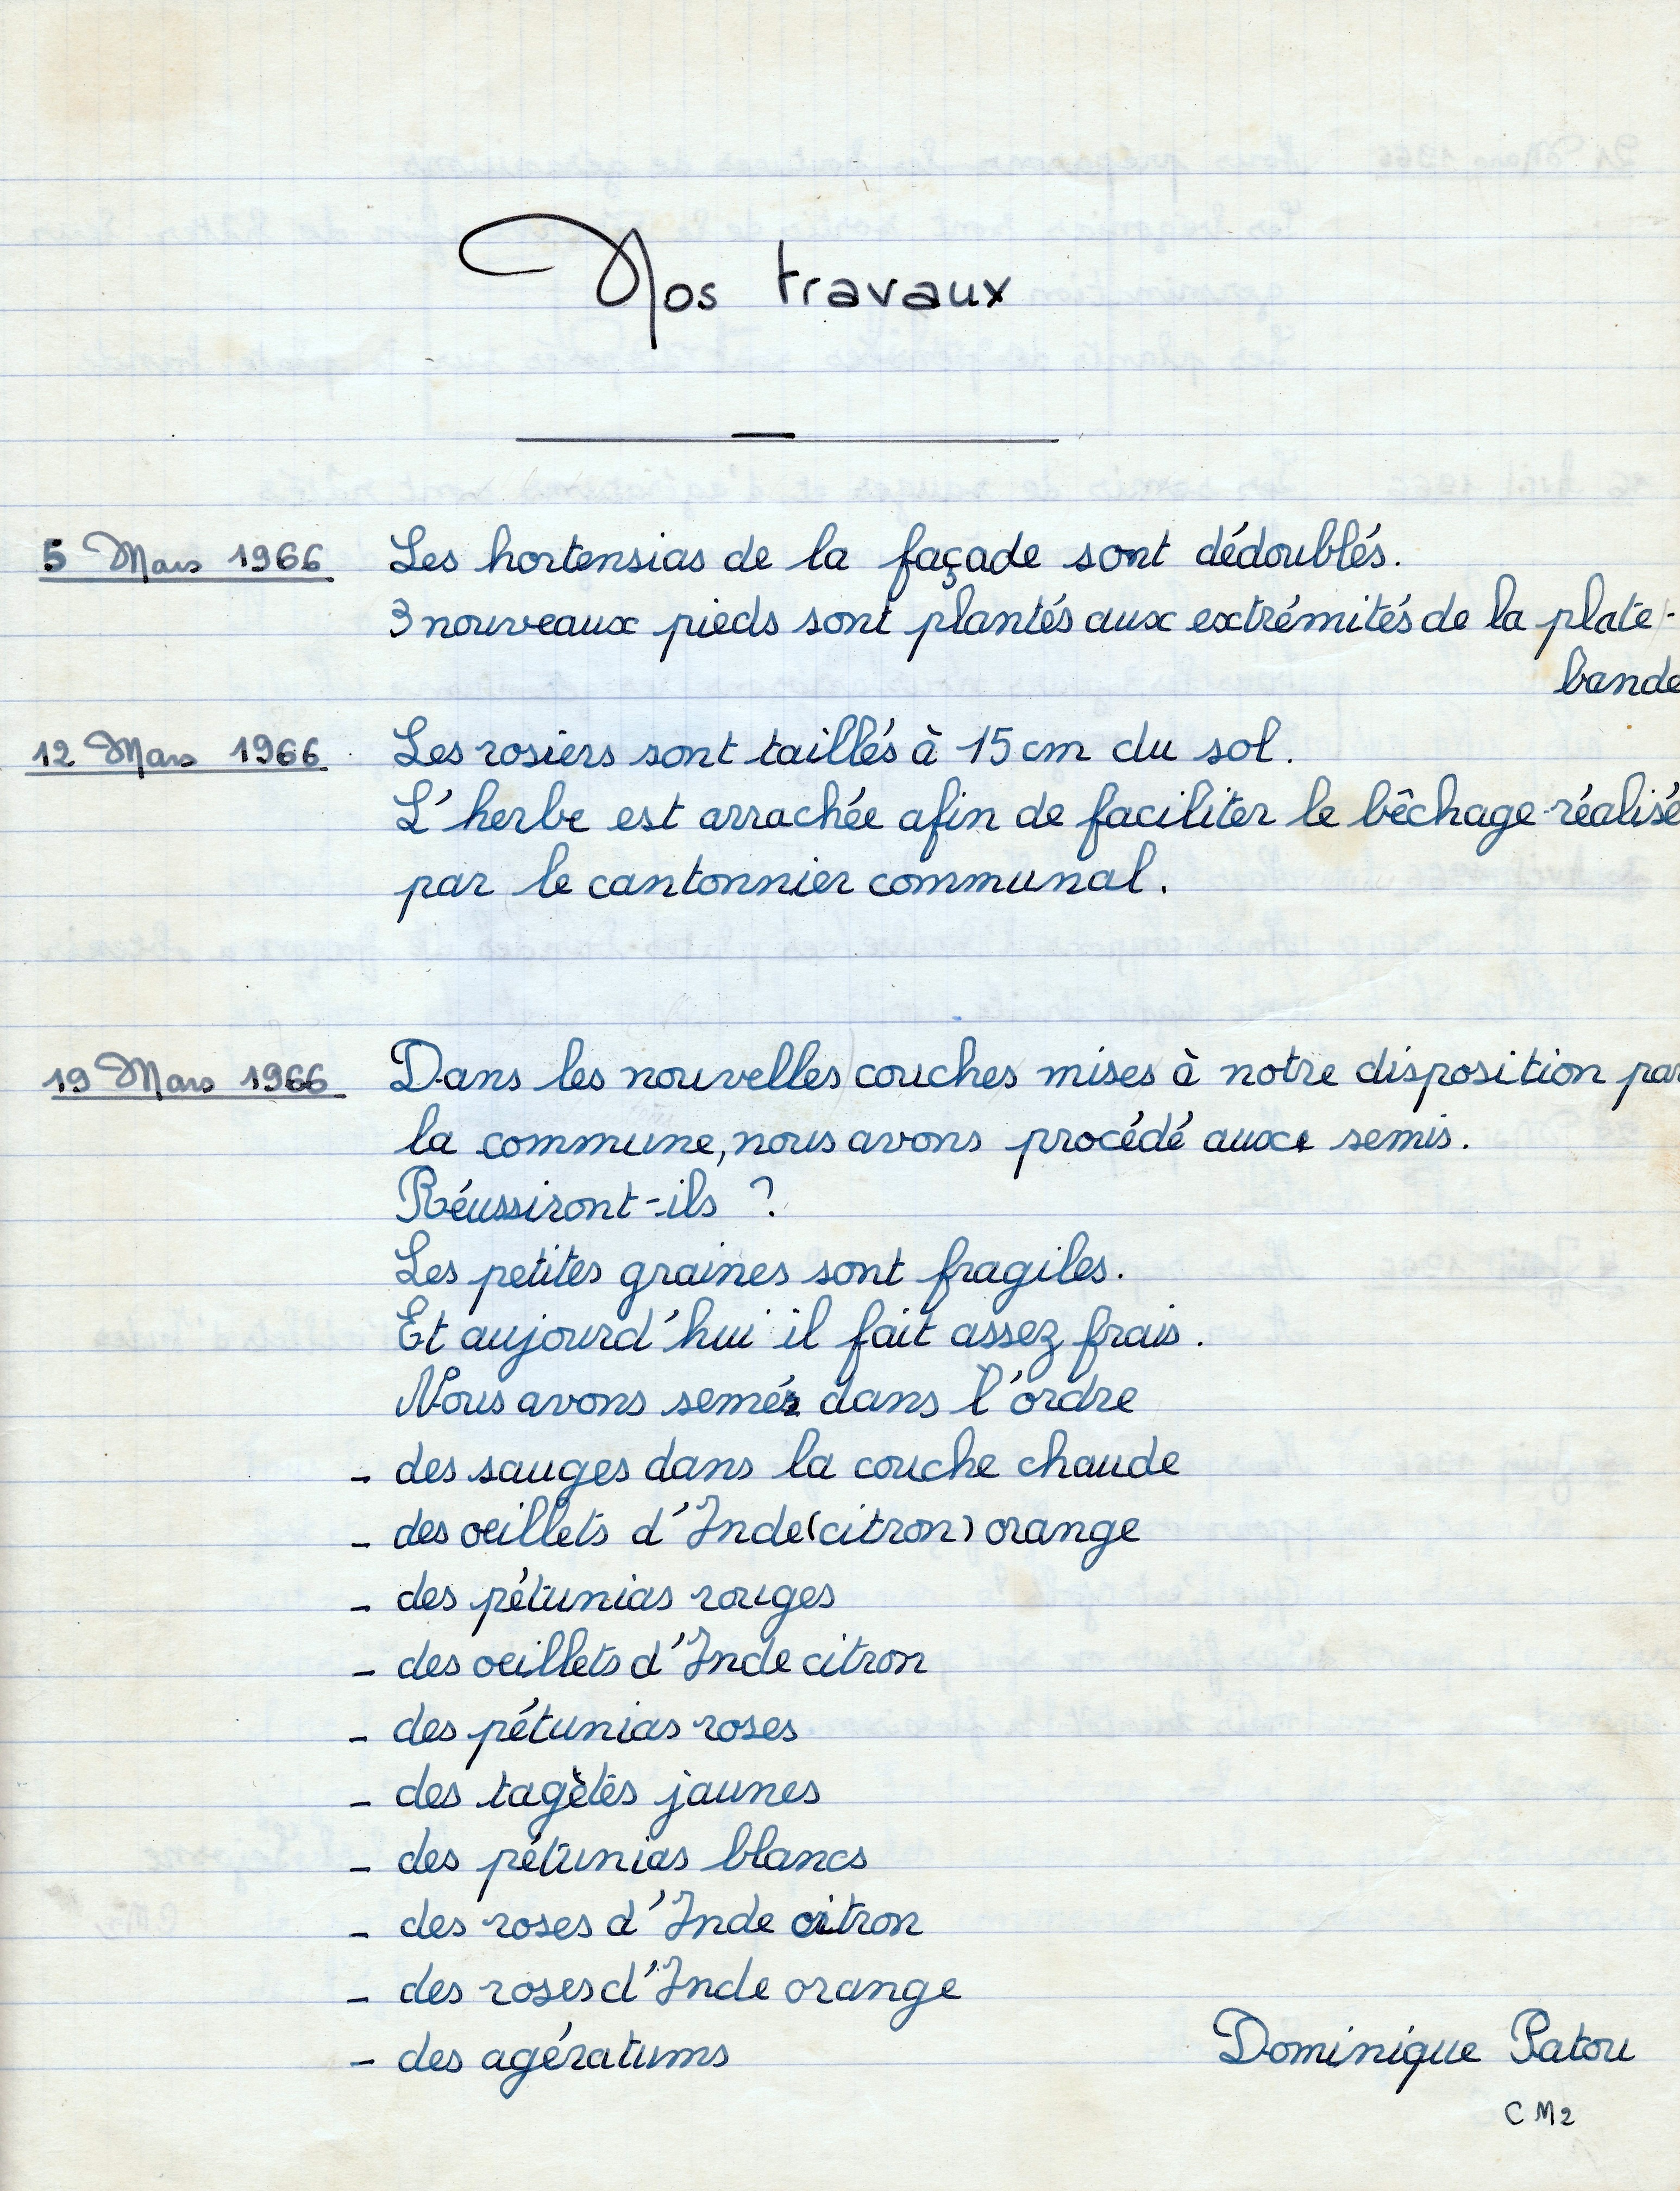 Nos travaux
5 Mars 1966 Les hortensias de la façade sont dédoublés.
3 nouveaux pieds sont plantés aux extrémités de la plate-
bande
12 Mars 1966 Les rosiers sont taillés à 15 cm du sol.
L'herbe est arrachée afin de faciliter le bêchage réalisé
par le cantonnier communal.
19 Mars 1966 Dans les nouvelles couches mises à notre disposition par
la commune, nous avons procédé aux semis.
Réussiront-ils ?
Les petites graines sont fragiles.
Et aujourd'hui il fait assez frais.
Nous avons semé dans l'ordre
- des sauges dans la couche chaude
- des oeillets d'Inde (citron) orange
- des pétunias rouges
- des oeillets d'Inde citron
- des pétunias roses
- des tagètes jaunes
- des pétunias blancs
- des roses d'Inde citron
- des roses d'Inde orange
- des agératums
Dominique Patou
CM2